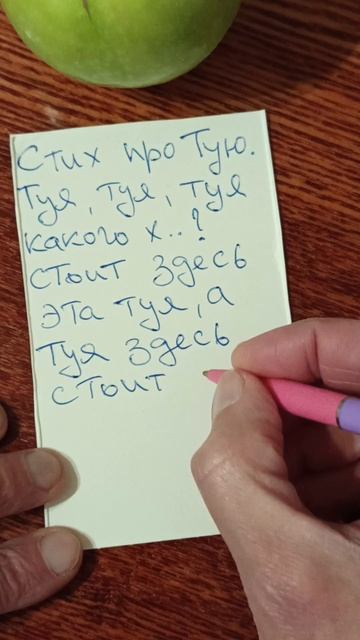 Стих про Тую.
Туя, туя, туя
какого х..?
стоит здесь
эта туя, а
туя здесь
стоит